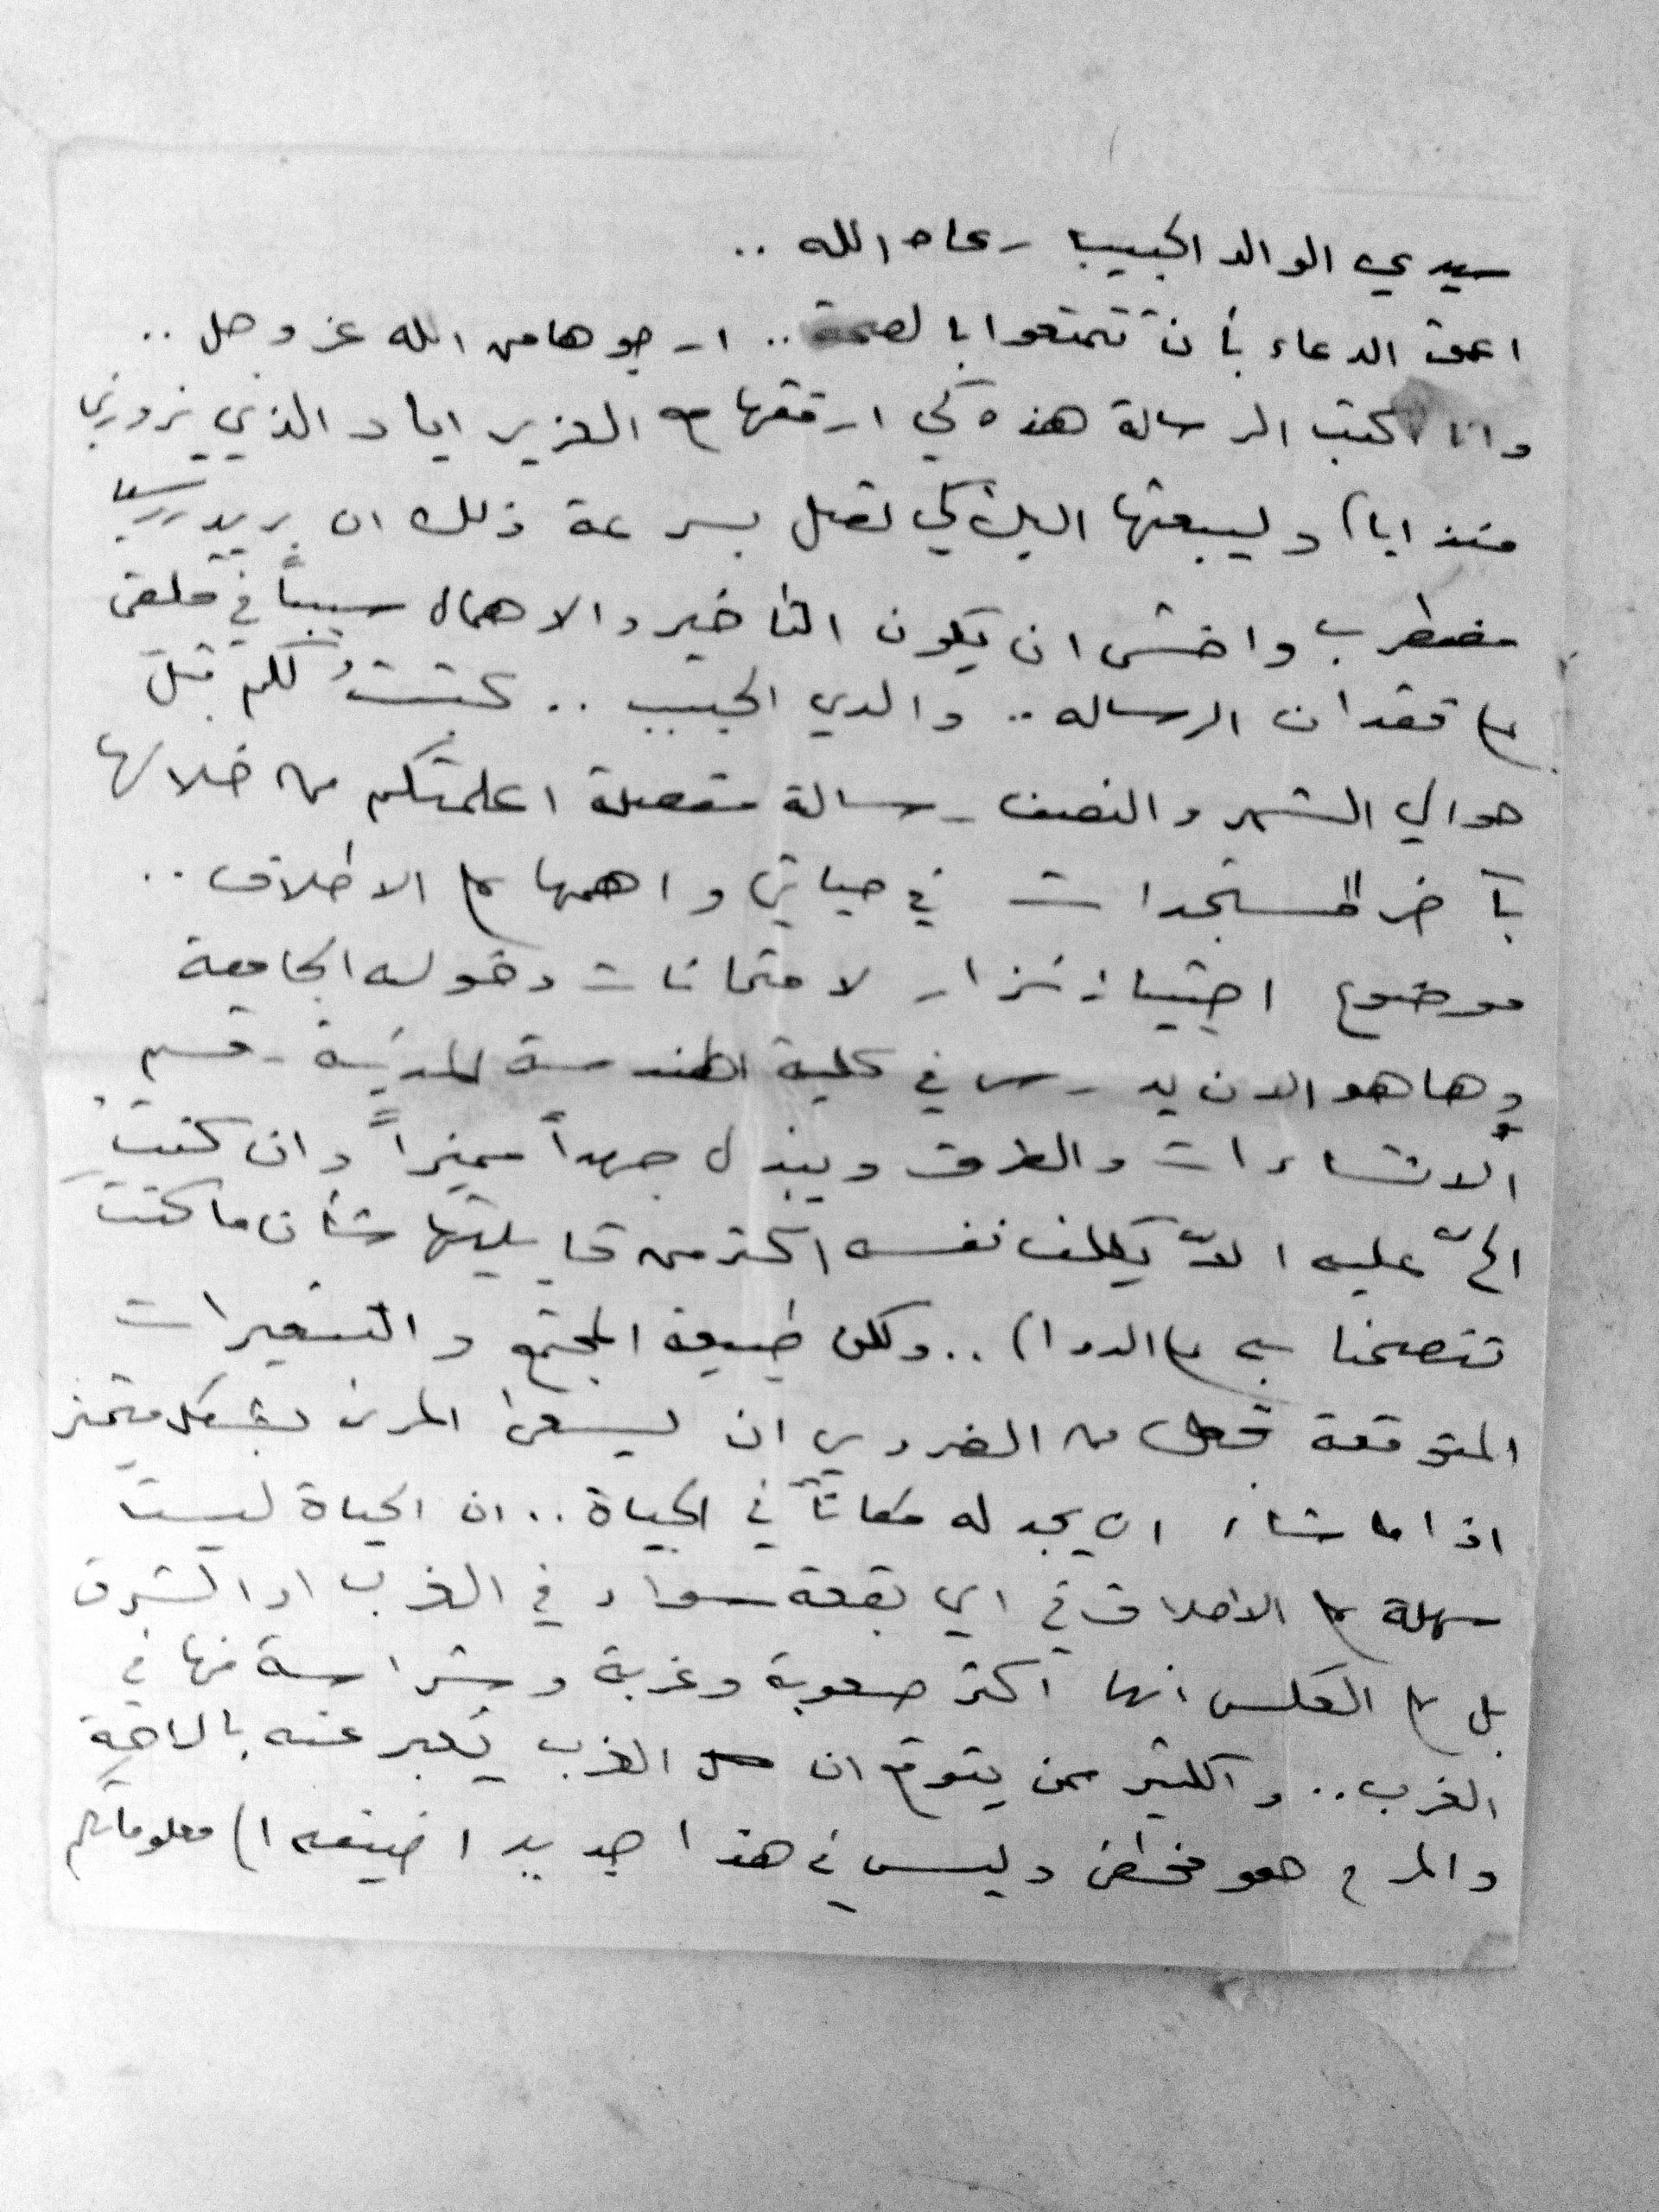 سيدي الوالد الحبيب رعاه الله ..
اعمق الدعاء بأن تتمتعوا بالصحة .. ارجوها من الله عز وجل ..
وانا اكتب الرسالة هذه كي ارفقها مع العزيز اياد الذي يزورني
منذ ايام وليبعثها اليك كي تصل بسرعة ذلك ان بريد روسيا
مضطرب واخشى ان يكون التأخير والاهمال سبباً في قلقي
على فقدان الرساله .. والدي الحبيب .. كتبتُ لكم قبل
حوالي الشهر والنصف رسالة مفصلة اعلمتكم من خلالها
بآخر المستجدات في حياتي واهمها على الاطلاق ..
موضوع اجتياز نزار لامتحانات دخوله الجامعة
وها هو الان يدرس في كلية الهندسة المدنية - قسم
الانشاءات والطرق ويبذل جهداً مميزاً وان كنت
الحّ عليه الاّ يكلف نفسه اكثر من قابليتها شأن ما كنت
تنصحنا به على الدوام .. ولكن طبيعة المجتمع والتغيرات
المتوقعة تجعل من الضروري ان يسعى المرء بشكل متميز
اذا ما شاء ان يجد له مكاناً في الحياة .. ان الحياة ليست
سهلة على الاطلاق في اي بقعة سواء في الغرب او الشرق
بل على العكس انها اكثر صعوبة وغربة وشراسة منها في
الغرب .. والكثير ممن يتوقع ان الغرب يعبر عنه بالراحة
والمرح هو مخطئ وليس في هذا جديد اضيفه الى معلوماتكم